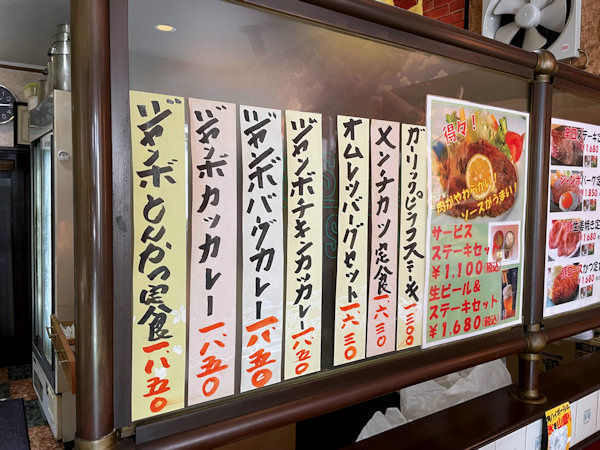 ジャンボとんかつ定食 一、八五〇
ジャンボカツカレー 一、八五〇
ジャンボバーグカレー 一、八五〇
ジャンボチキンカツカレー 一、八五〇
オムレツバーグセット 一、六三〇
メンチカツ定食 一、六三〇
ガーリックピラフステーキ
得々!
肉がやわらかい!
ソースがうまい!
サービス
ステーキセット
¥1,100(税込)
生ビール&
ステーキセット
¥1,680(税込)